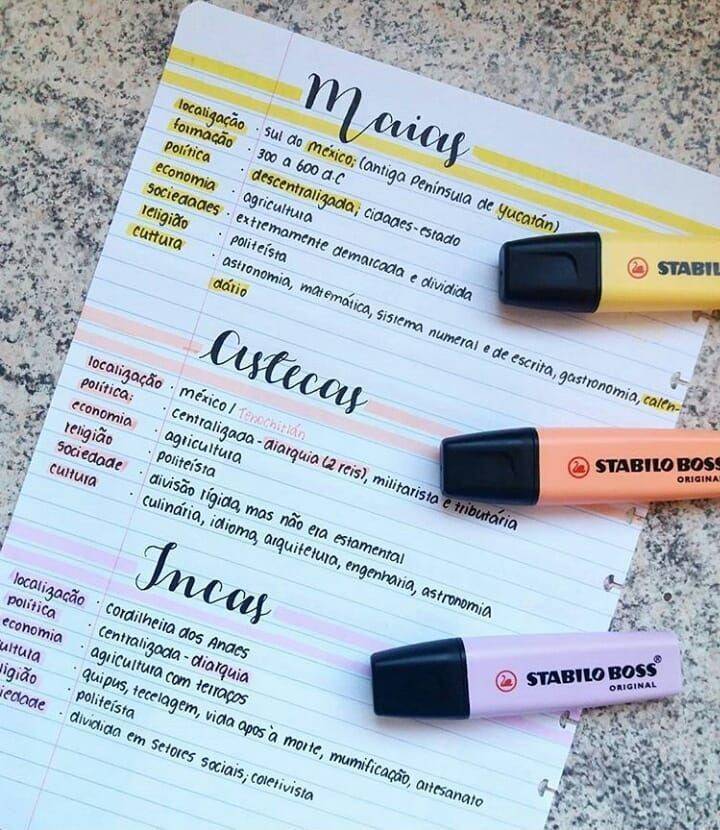 Maias
localização · sul do méxico; (antiga Península de Yucatán)
formação · 300 a 600 d.C
política · descentralizada; cidades-estado
economia · agricultura
sociedades · extremamente demarcada e dividida
religião · politeísta
cultura · astronomia, matemática, sistema numeral e de escrita, gastronomia, calen-
dário
STABIL
Astecas
localização · méxico / Tenochtitlán
política: · centralizada - diarquia (2 reis), militarista e tributária
economia · agricultura
religião · politeísta
sociedade · divisão rígida, mas não era estamental
cultura · culinária, idioma, arquitetura, engenharia, astronomia
STABILO BOSS
ORIGINAL
Incas
localização · cordilheira dos Andes
política · centralizada - diarquia
economia · agricultura com terraços
ultura · quipus, tecelagem, vida apos à morte, mumificação, artesanato
ligião · politeísta
iedade · dividida em setores sociais; coletivista
STABILO BOSS®
ORIGINAL